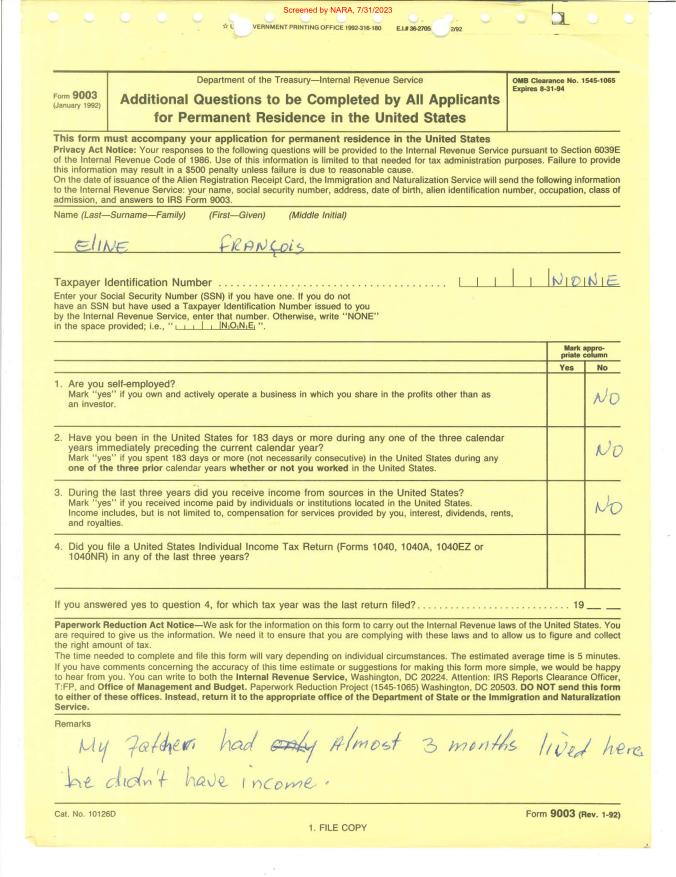 Screened by NARA, 7/31/2023
VERNMENT PRINTING OFFICE 1992-316-180 E.I.# 36-2705 2/92
Form 9003
(January 1992)
Department of the Treasury—Internal Revenue Service
Additional Questions to be Completed by All Applicants
for Permanent Residence in the United States
OMB Clearance No. 1545-1065
Expires 8-31-94
This form must accompany your application for permanent residence in the United States
Privacy Act Notice: Your responses to the following questions will be provided to the Internal Revenue Service pursuant to Section 6039E
of the Internal Revenue Code of 1986. Use of this information is limited to that needed for tax administration purposes. Failure to provide
this information may result in a $500 penalty unless failure is due to reasonable cause.
On the date of issuance of the Alien Registration Receipt Card, the Immigration and Naturalization Service will send the following information
to the Internal Revenue Service: your name, social security number, address, date of birth, alien identification number, occupation, class of
admission, and answers to IRS Form 9003.
Name (Last—Surname—Family) (First—Given) (Middle Initial)
EliNE FRANÇOIS
Taxpayer Identification Number NONE
Enter your Social Security Number (SSN) if you have one. If you do not
have an SSN but have used a Taxpayer Identification Number issued to you
by the Internal Revenue Service, enter that number. Otherwise, write "NONE"
in the space provided; i.e., " N,O,N,E ".
Mark appro-
priate column
Yes No
1. Are you self-employed?
Mark "yes" if you own and actively operate a business in which you share in the profits other than as
an investor.
NO
2. Have you been in the United States for 183 days or more during any one of the three calendar
years immediately preceding the current calendar year?
Mark "yes" if you spent 183 days or more (not necessarily consecutive) in the United States during any
one of the three prior calendar years whether or not you worked in the United States.
NO
3. During the last three years did you receive income from sources in the United States?
Mark "yes" if you received income paid by individuals or institutions located in the United States.
Income includes, but is not limited to, compensation for services provided by you, interest, dividends, rents,
and royalties.
NO
4. Did you file a United States Individual Income Tax Return (Forms 1040, 1040A, 1040EZ or
1040NR) in any of the last three years?
If you answered yes to question 4, for which tax year was the last return filed? 19 __ __
Paperwork Reduction Act Notice—We ask for the information on this form to carry out the Internal Revenue laws of the United States. You
are required to give us the information. We need it to ensure that you are complying with these laws and to allow us to figure and collect
the right amount of tax.
The time needed to complete and file this form will vary depending on individual circumstances. The estimated average time is 5 minutes.
If you have comments concerning the accuracy of this time estimate or suggestions for making this form more simple, we would be happy
to hear from you. You can write to both the Internal Revenue Service, Washington, DC 20224. Attention: IRS Reports Clearance Officer,
T:FP, and Office of Management and Budget. Paperwork Reduction Project (1545-1065) Washington, DC 20503. DO NOT send this form
to either of these offices. Instead, return it to the appropriate office of the Department of State or the Immigration and Naturalization
Service.
Remarks
My Father had only Almost 3 months lived here
he didn't have income.
Cat. No. 10126D
Form 9003 (Rev. 1-92)
1. FILE COPY